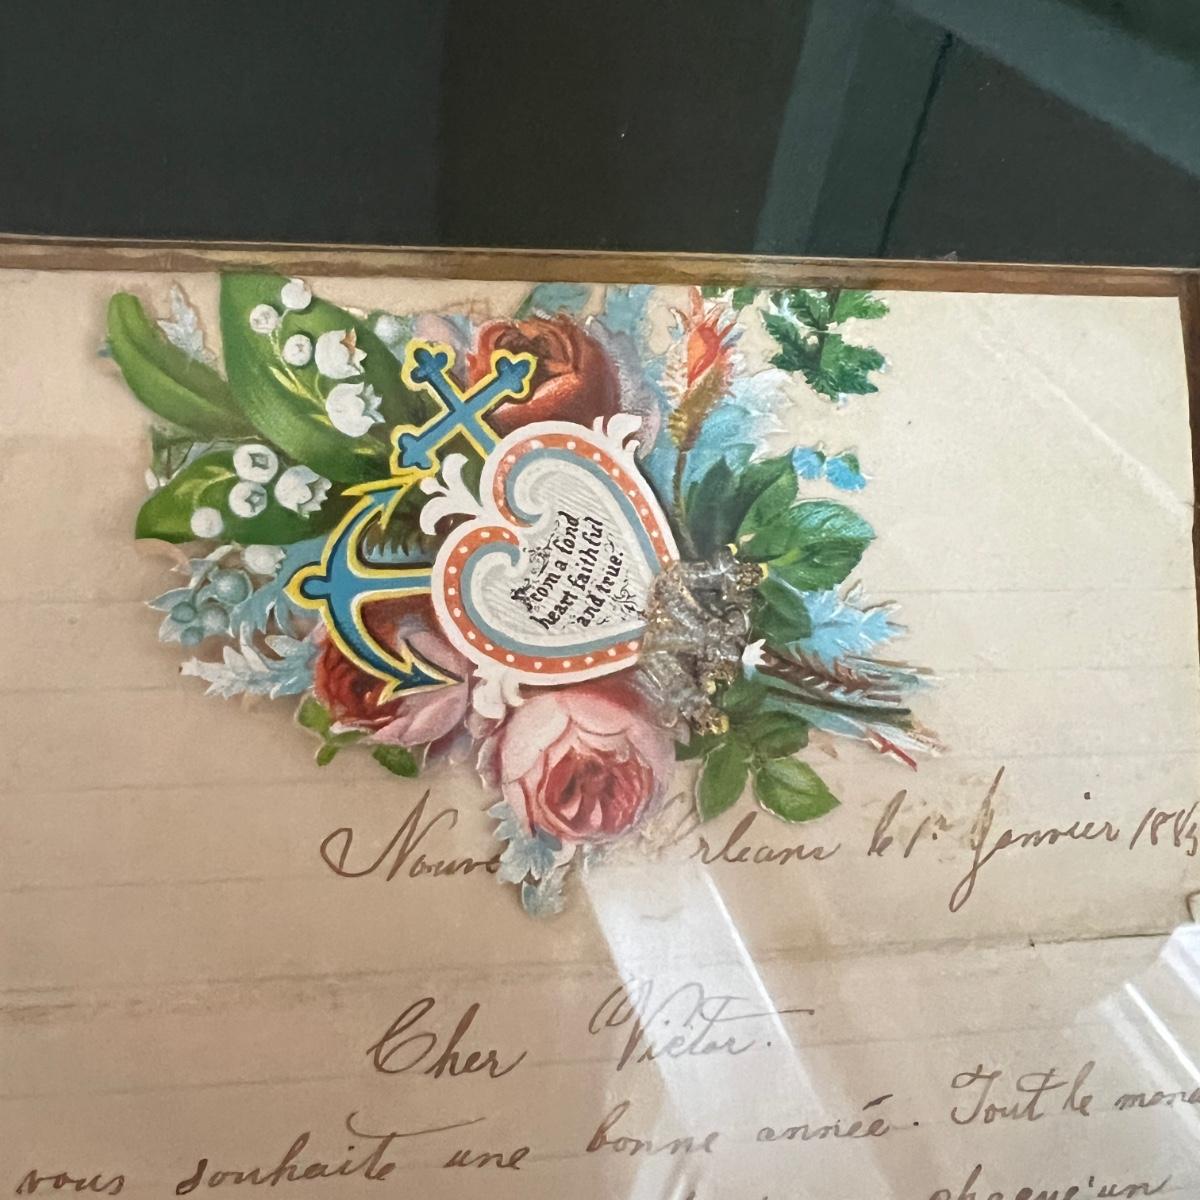 From a fond
heart faithful
and true.
Nouve rleans le 1r Janvier 188
Cher Victor.
vous souhaite une bonne année. Tout le mon
chaqu'un